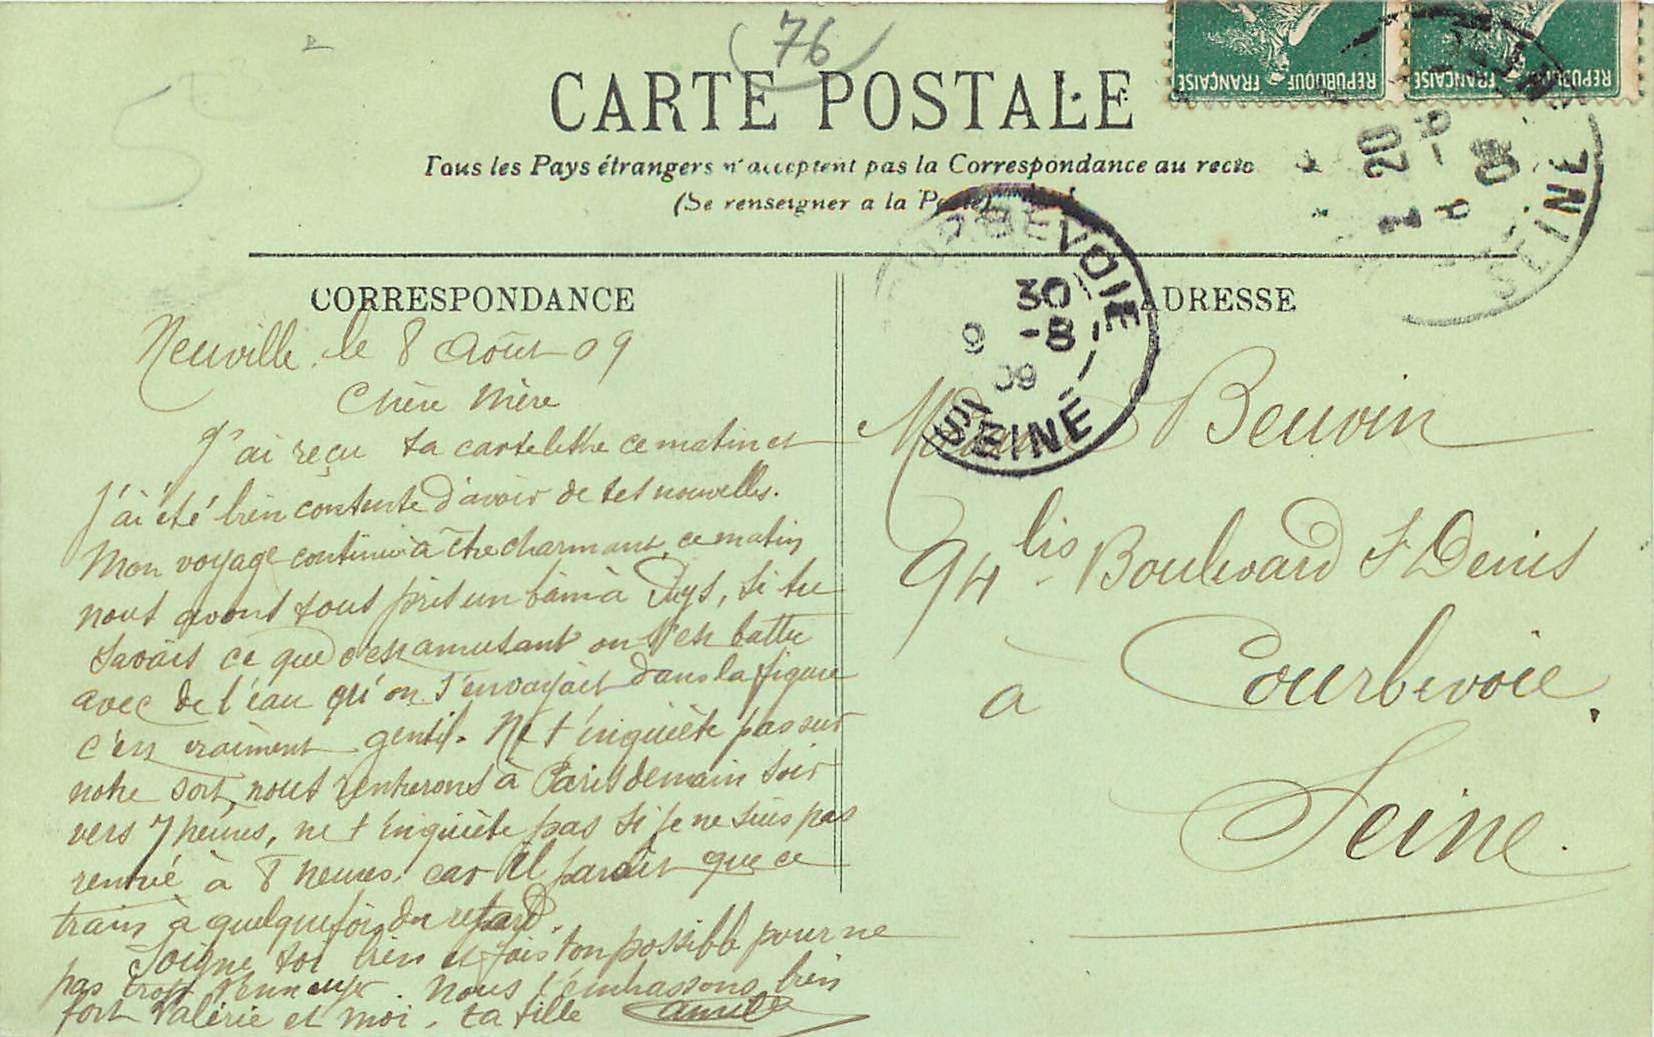 76
CARTE POSTALE
Tous les Pays étrangers n'acceptent pas la Correspondance au recto
(Se renseigner a la Poste)
REPUBLIQUE FRANÇAISE
REPUBLIQUE FRANÇAISE
7 20
SEINE
COURBEVOIE
30 -8
09
SEINE
CORRESPONDANCE
ADRESSE
Neuville le 8 Août 09
Chère Mère
J'ai reçu ta carte lettre ce matin et
j'ai été bien contente d'avoir de tes nouvelles.
Mon voyage continu à être charmant, ce matin
nous avons tous pris un bain à Puys, si tu
savais ce que c'est amusant on s'est battu
avec de l'eau qu'on s'envoyait dans la figure
c'est vraiment gentil. Ne t'inquiète pas sur
notre sort, nous rentrerons à Paris demain soir
vers 7 heures, ne t'inquiète pas si je ne suis pas
rentré à 8 heures car il parait que ce
train à quelquefois du retard.
Soigne toi bien et fais ton possible pour ne
pas trop t'ennuyer. Nous t'embrassons bien
fort Valérie et moi. ta fille
Madame Beuvin
94 bis Boulevard St Denis
à Courbevoie.
Seine.